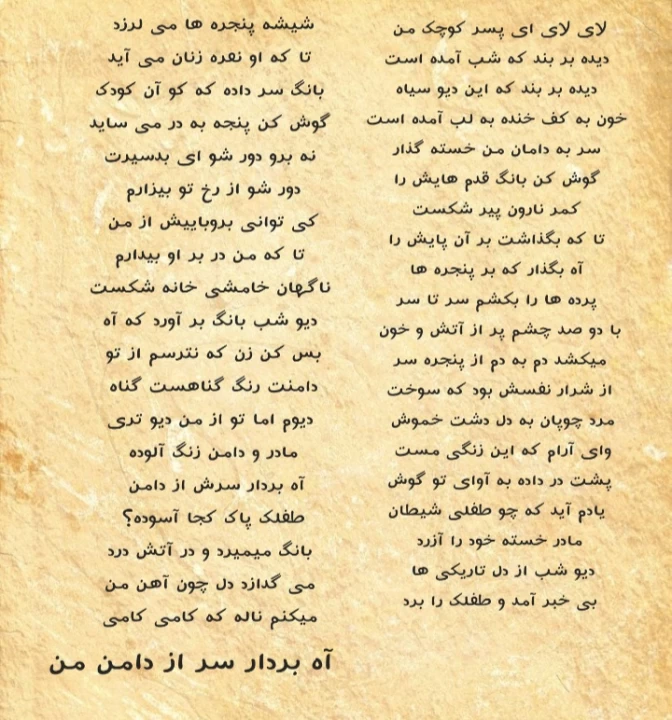 لای لای ای پسر کوچک من
دیده بر بند که شب آمده است
دیده بر بند که این دیو سیاه
خون به کف خنده به لب آمده است
سر به دامان من خسته گذار
گوش کن بانگ قدم هایش را
کمر نارون پیر شکست
تا که بگذاشت بر آن پایش را
آه بگذار که بر پنجره ها
پرده ها را بکشم سر تا سر
با دو صد چشم پر از آتش و خون
میکشد دم به دم از پنجره سر
از شرار نفسش بود که سوخت
مرد چوپان به دل دشت خموش
وای آرام که این زنگی مست
پشت در داده به آوای تو گوش
یادم آید که چو طفلی شیطان
مادر خسته خود را آزرد
دیو شب از دل تاریکی ها
بی خبر آمد و طفلک را برد
شیشه پنجره ها می لرزد
تا که او نعره زنان می آید
بانگ سر داده که کو آن کودک
گوش کن پنجه به در می ساید
نه برو دور شو ای بدسیرت
دور شو از رخ تو بیزارم
کی توانی برباییش از من
تا که من در بر او بیدارم
ناگهان خامشی خانه شکست
دیو شب بانگ بر آورد که آه
بس کن زن که نترسم از تو
دامنت رنگ گناهست گناه
دیوم اما تو از من دیو تری
مادر و دامن زنگ آلوده
آه بردار سرش از دامن
طفلک پاک کجا آسوده؟
بانگ میمیرد و در آتش درد
می گدازد دل چون آهن من
میکنم ناله که کامی کامی
آه بردار سر از دامن من